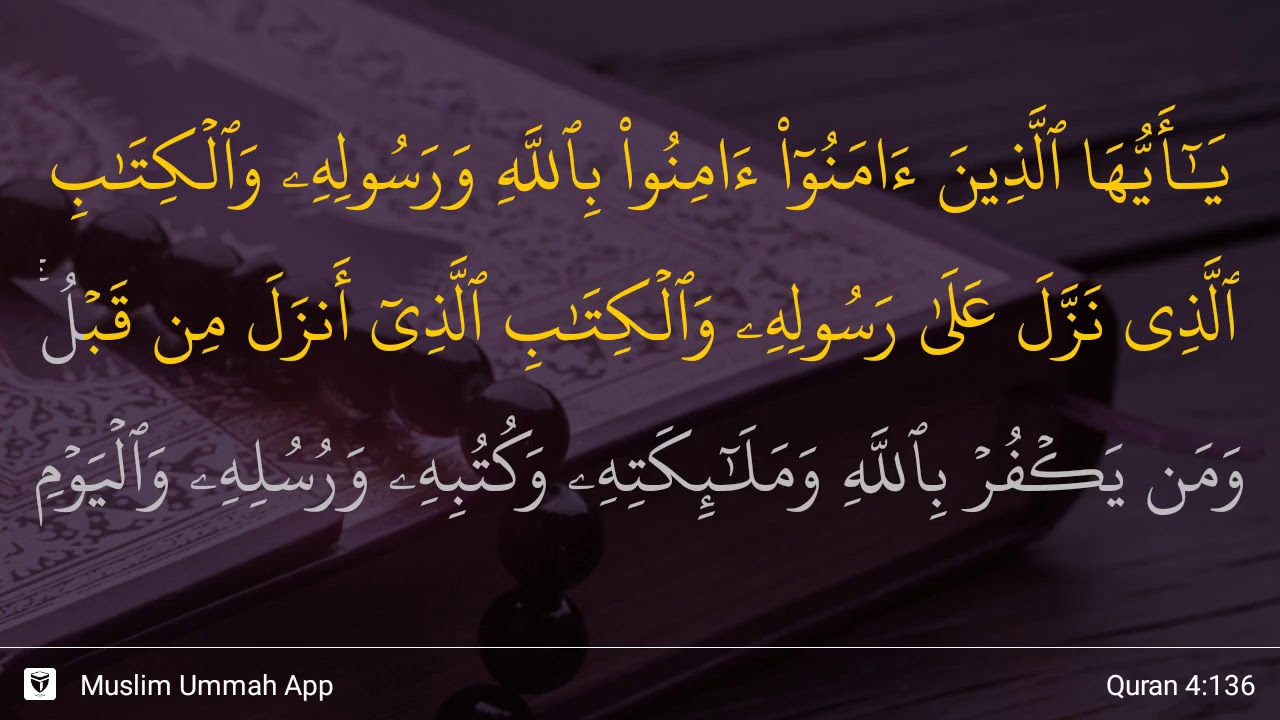 يَـٰٓأَيُّهَا ٱلَّذِينَ ءَامَنُوٓا۟ ءَامِنُوا۟ بِٱللَّهِ وَرَسُولِهِۦ وَٱلْكِتَـٰبِ
ٱلَّذِى نَزَّلَ عَلَىٰ رَسُولِهِۦ وَٱلْكِتَـٰبِ ٱلَّذِىٓ أَنزَلَ مِن قَبْلُ ۚ
وَمَن يَكْفُرْ بِٱللَّهِ وَمَلَـٰٓئِكَتِهِۦ وَكُتُبِهِۦ وَرُسُلِهِۦ وَٱلْيَوْمِ
Muslim Ummah App
Quran 4:136